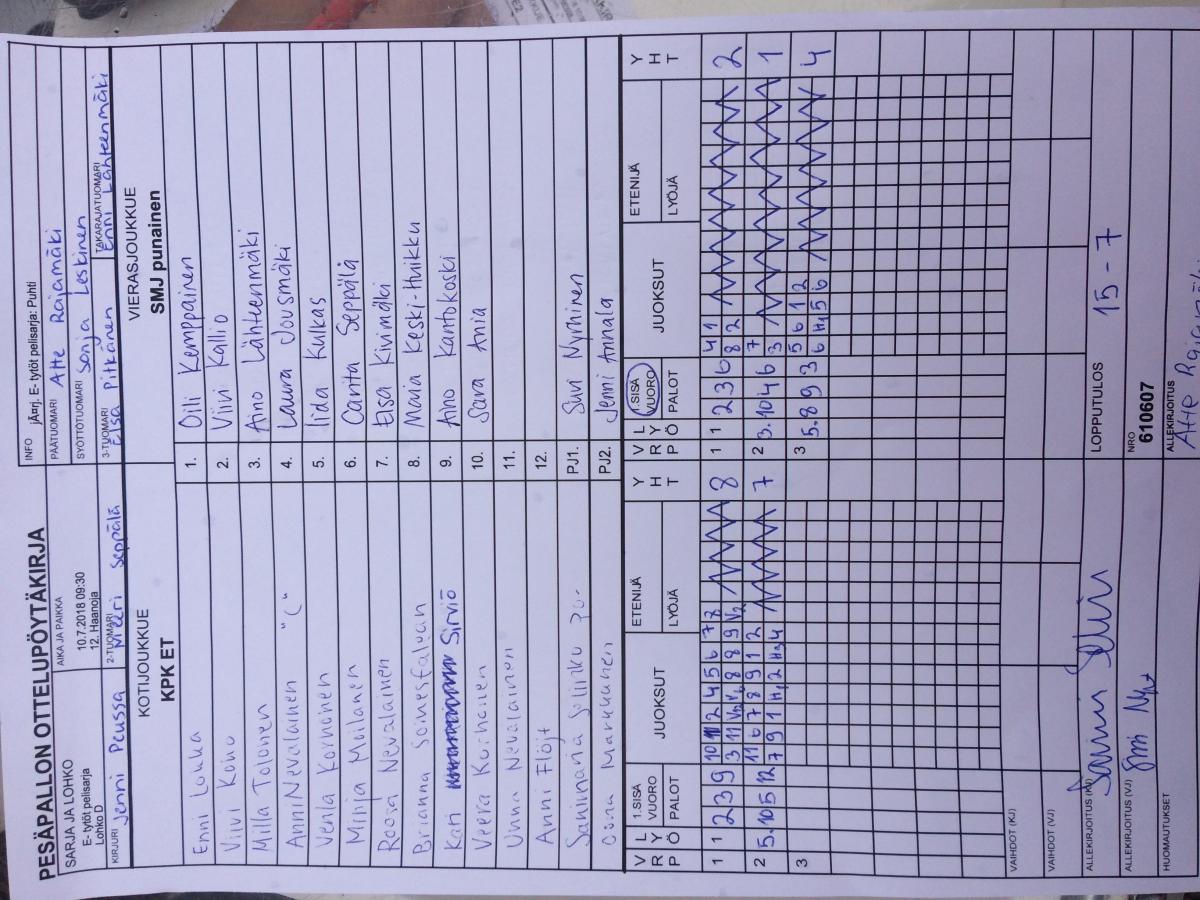 PESÄPALLON OTTELUPÖYTÄKIRJA
INFO jÄrrj. E- tytöt pelisarja: Puhti
SARJA JA LOHKO
E- tytöt pelisarja
Lohko D
AIKA JA PAIKKA
10.7.2018 09:30
12. Haanoja
PÄÄTUOMARI Atte Rajamäki
SYÖTTÖTUOMARI Sonja Leskinen
KIRJURI Jenni Peussa
2-TUOMARI Meeri Seppälä
3-TUOMARI Elsa Pitkänen
TAKARAJATUOMARI Enni Lähteenmäki
KOTIJOUKKUE
KPK ET
VIERASJOUKKUE
SMJ punainen
Enni Lokka 1. Oili Kemppainen
Viivi Koho 2. Viivi Kallio
Milla Tolonen 3. Aino Lähteenmäki
Anni Nevalainen "C" 4. Laura Jousmäki
Venla Korhonen 5. Iida Kulkas
Minja Moilanen 6. Carita Seppälä
Roosa Nevalainen 7. Elsa Kivimäki
Brianna 8. Maria Keski-Huikku
Kati Sirviö 9. Aino Kantokoski
Veera Karhonen 10. Sara Ania
Unna Nevalainen 11.
Anni Flöjt 12.
PJ1. Suvi Nyrhinen
Markkanen PJ2. Jenni Annala
V R P
L Y Ö
1.SISÄ VUORO
PALOT
JUOKSUT
ETENIJÄ
LYÖJÄ
Y H T
V R P
L Y Ö
1.SISÄ VUORO
PALOT
JUOKSUT
ETENIJÄ
LYÖJÄ
Y H T
1 1 2 3 9 10 11 2 4 5 6 7 8 8 1 1 2 3 6 4 1 2
3 11 V2 V6 8 8 9 V2 8 2
2 5. 10 5 12 11 6 7 8 9 1 2 7 2 3. 10 4 6 7 1
7 9 1 H1 2 H3 4 3
3 3 5. 8 9 3 5 6 1 2 4
6 H1 5 6
VAIHDOT (KJ)
VAIHDOT (VJ)
ALLEKIRJOITUS (KJ)
LOPPUTULOS 15 - 7
ALLEKIRJOITUS (VJ)
NRO
610607
HUOMAUTUKSET
ALLEKIRJOITUS
Atte